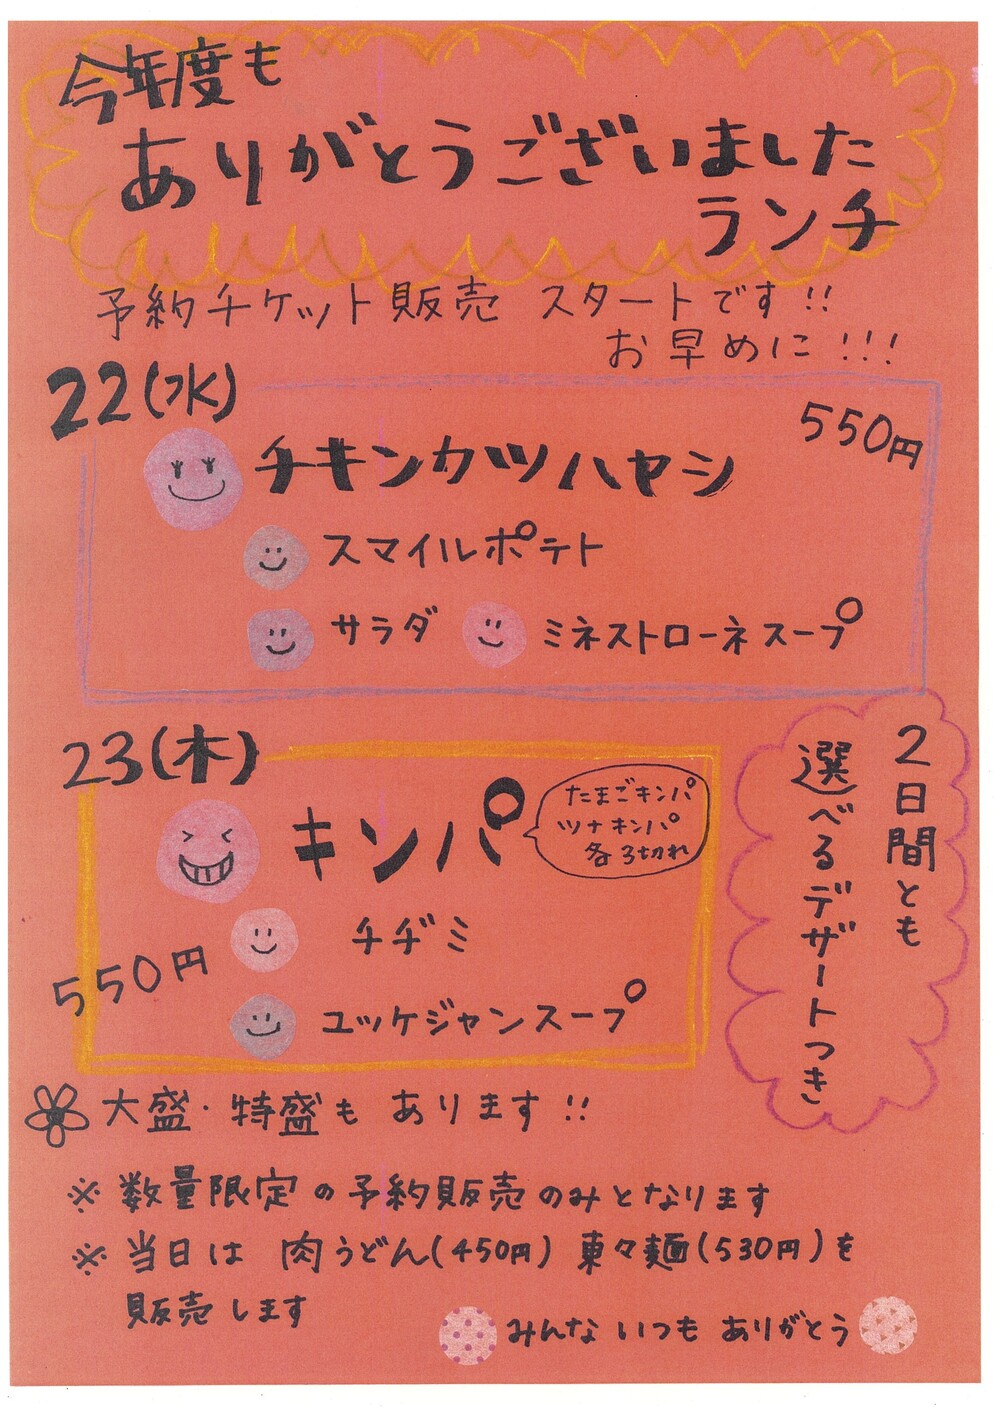 今年度も
ありがとうございました
ランチ
予約チケット販売 スタートです!!
お早めに!!!
22(水)
550円
チキンカツハヤシ
スマイルポテト
サラダ ミネストローネスープ
23(木)
キンパ
たまごキンパ
ツナキンパ
各3切れ
チヂミ
550円
ユッケジャンスープ
2日間とも
選べるデザートつき
大盛・特盛も あります!!
※数量限定の予約販売のみとなります
※当日は 肉うどん(450円) 東々麺(530円)を
販売します
みんな いつも ありがとう